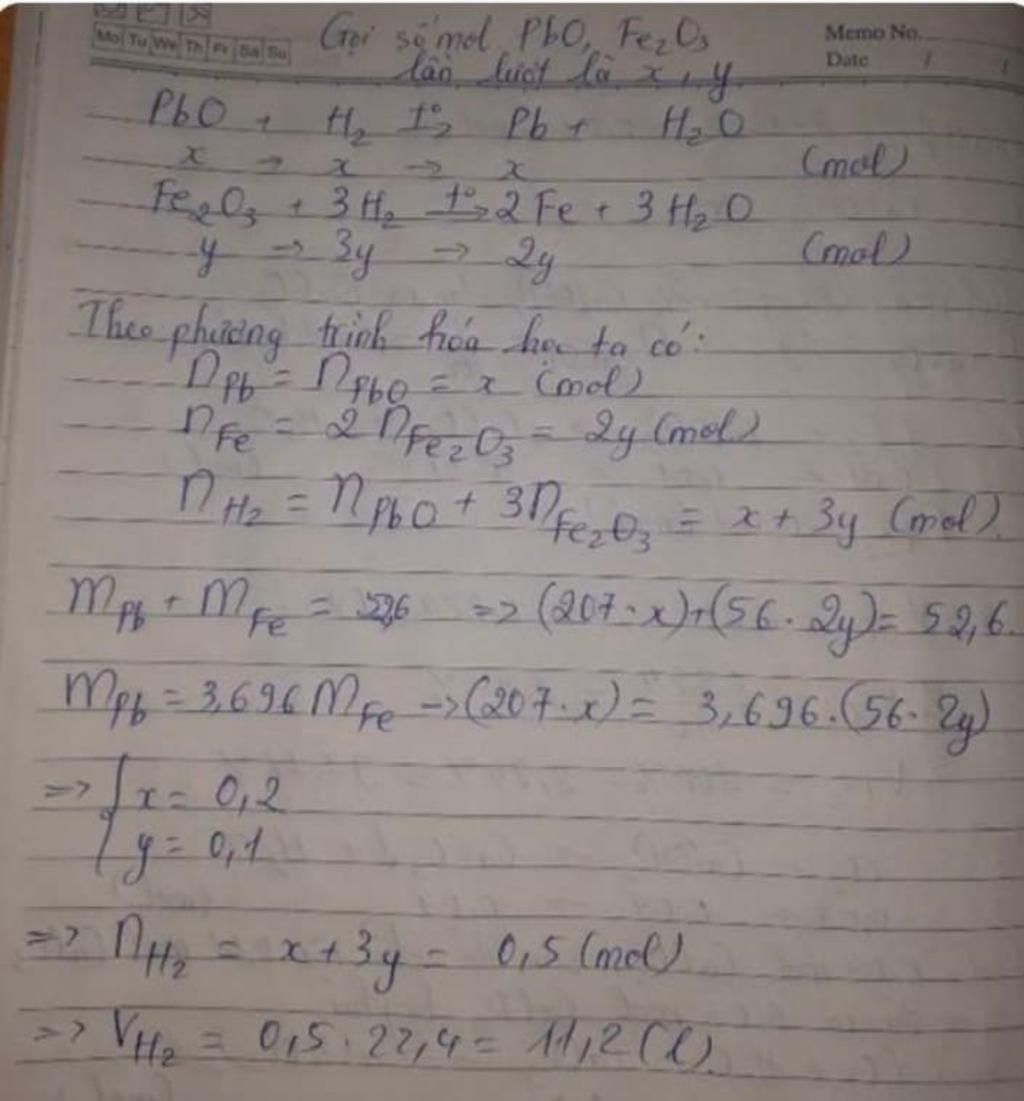 Mo Tu We Th Fr Sa Su
Memo No.
Date / /
Gọi số mol PbO, Fe₂O₃
lần lượt là x, y
PbO + H₂ t°→ Pb + H₂O
x → x → x (mol)
Fe₂O₃ + 3H₂ t°→ 2Fe + 3H₂O
y → 3y → 2y (mol)
Theo phương trình hóa học ta có:
n_Pb = n_PbO = x (mol)
n_Fe = 2n_Fe₂O₃ = 2y (mol)
n_H₂ = n_PbO + 3n_Fe₂O₃ = x + 3y (mol).
m_Pb + m_Fe = 52,6 => (207 · x)+(56 · 2y)= 52,6.
m_Pb = 3,696 m_Fe -> (207 · x) = 3,696.(56 · 2y)
=> { x = 0,2
y = 0,1
=> n_H₂ = x + 3y = 0,5 (mol)
=> V_H₂ = 0,5 . 22,4 = 11,2 (l).